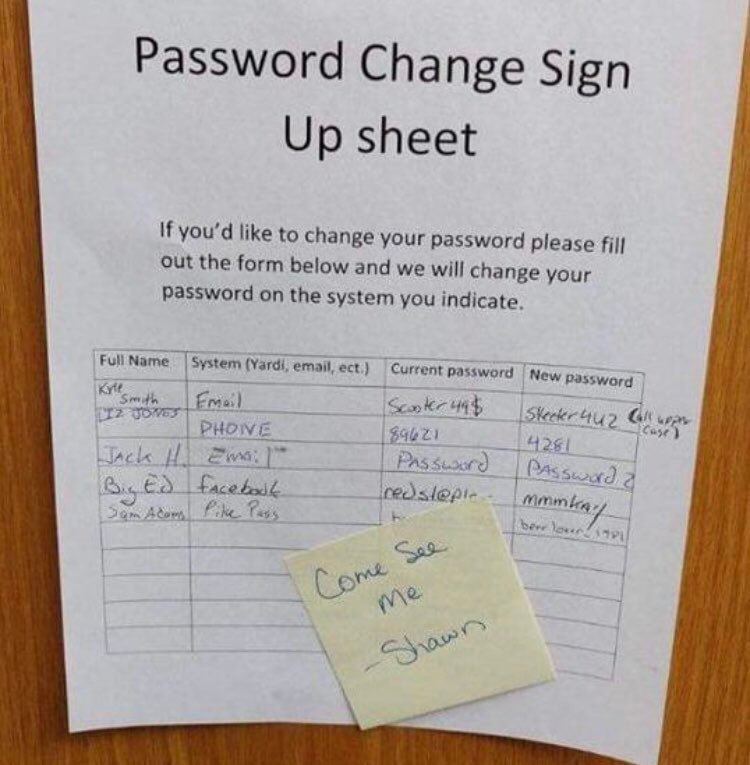 Password Change Sign
Up sheet
If you'd like to change your password please fill
out the form below and we will change your
password on the system you indicate.
Full Name System (Yardi, email, ect.) Current password New password
Kyle
Smith Email Scooter49$ Skeeter4U2 (all upper
case)
LIZ JONES PHONE 89621 4281
JACK H. Email PASSword PASSword 2
Big Ed facebook mmmkay
Sam Adams Pike Pass
Come See
Me
- Shawn